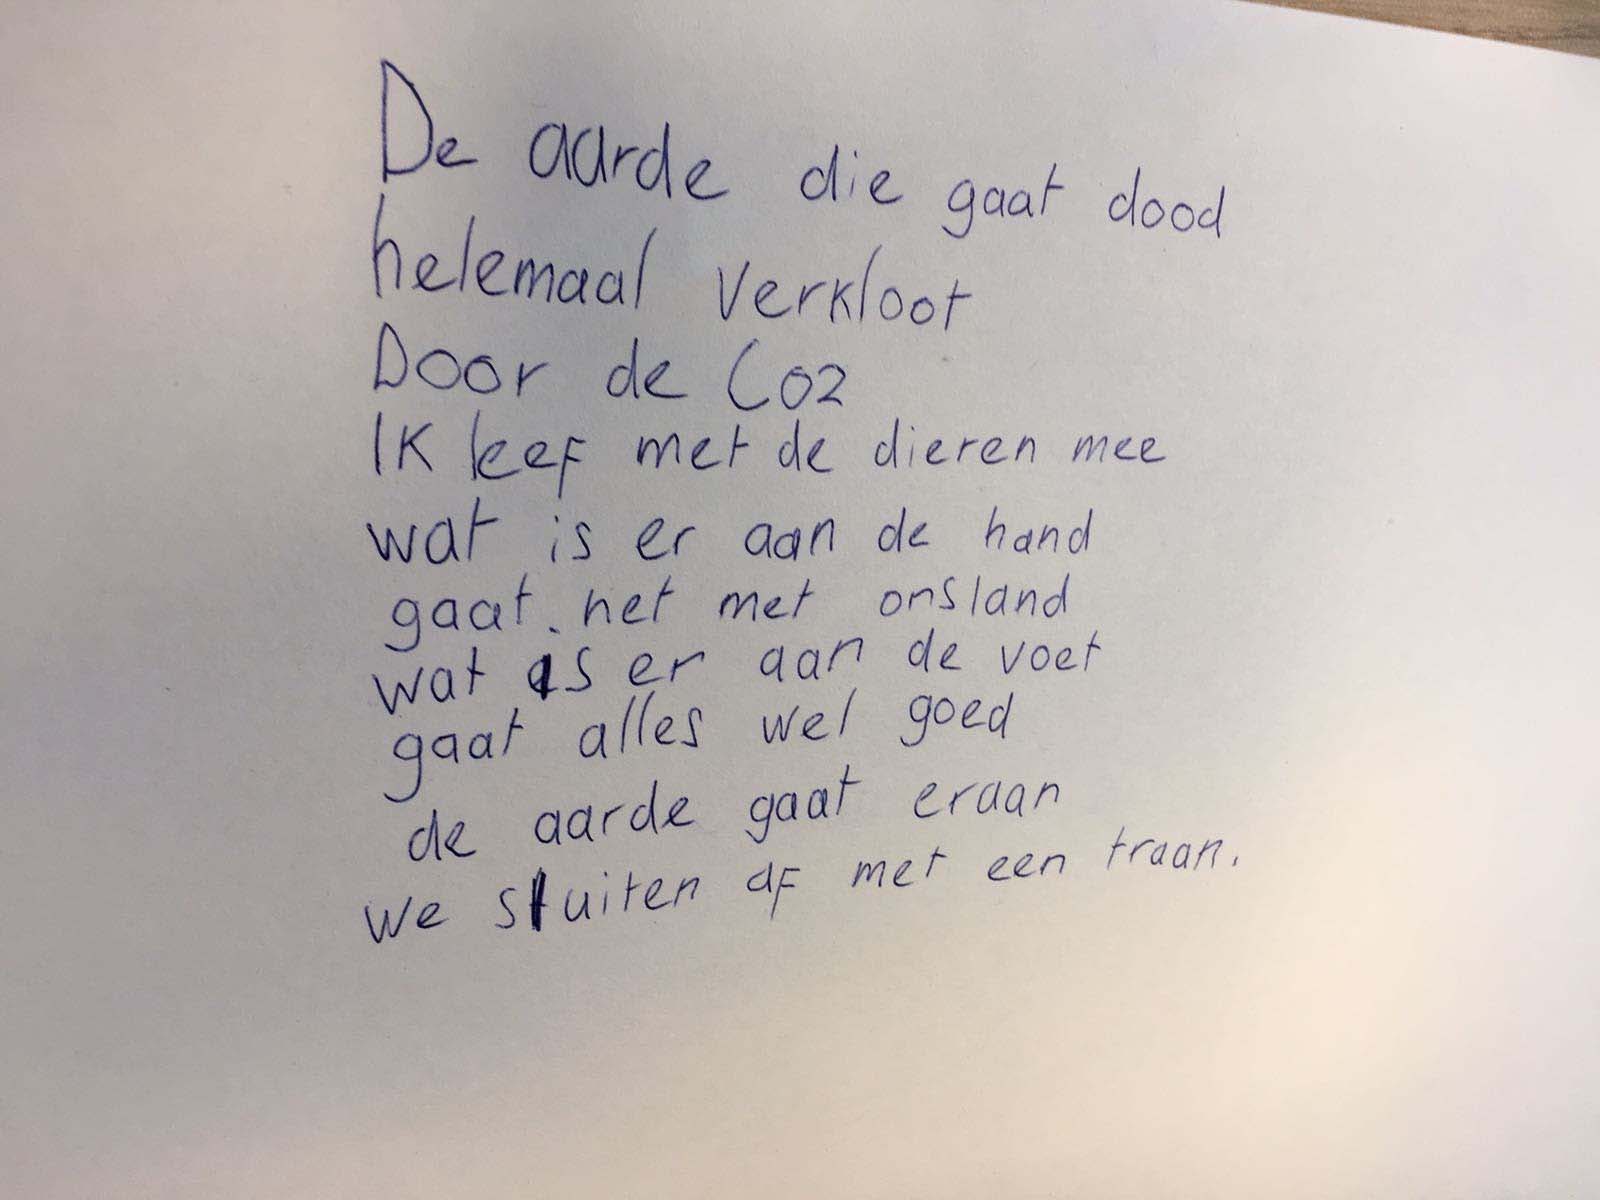 De aarde die gaat dood
helemaal verkloot
Door de CO2
Ik leef met de dieren mee
wat is er aan de hand
gaat. het met onsland
wat is er aan de voet
gaat alles wel goed
de aarde gaat eraan
we sluiten af met een traan.